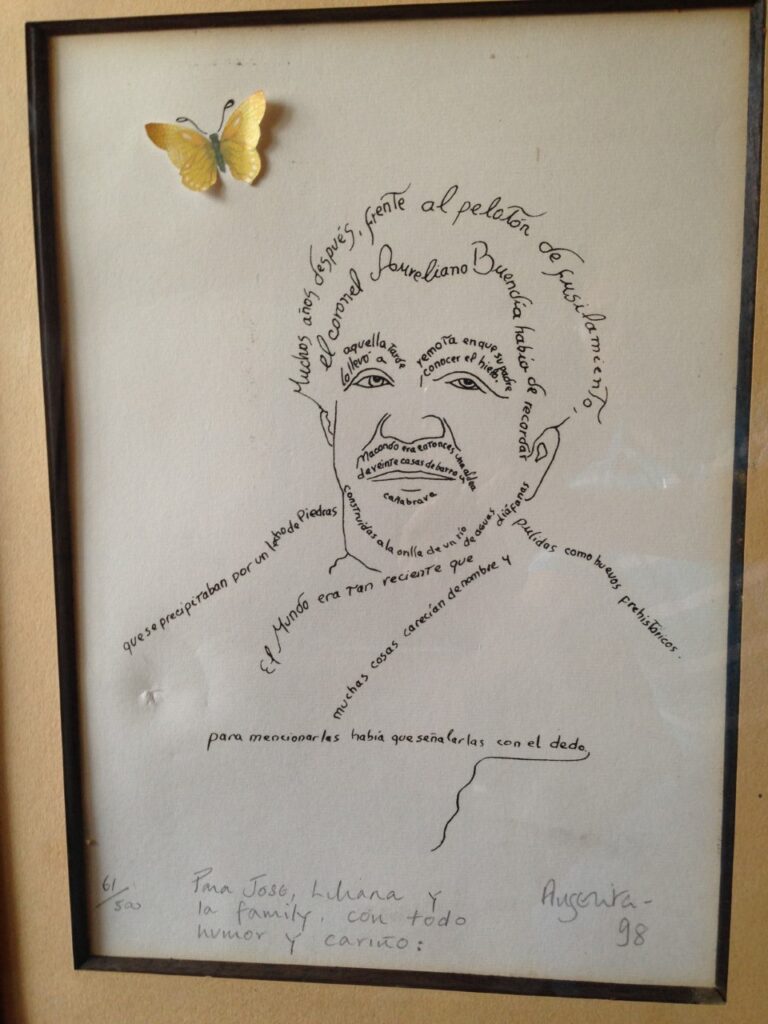 Muchos años después, frente al pelotón de fusilamiento
el coronel Aureliano Buendía había de recordar
aquella tarde
remota en que su padre
lo llevó a
conocer el hielo.
Macondo era entonces una aldea
de veinte casas de barro y
cañabrava
construidas a la orilla de un río
de aguas
diáfanas
que se precipitaban por un lecho de piedras
pulidas como huevos prehistóricos.
El Mundo era tan reciente que
muchas cosas carecían de nombre y
para mencionarlas había que señalarlas con el dedo.
61/500
Para Jose, Liliana y
la family, con todo
humor y cariño:
98